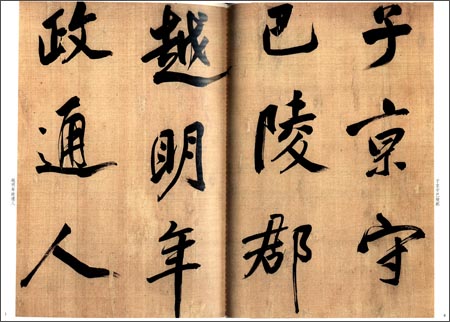 子京守
巴陵郡
越明年
政通人